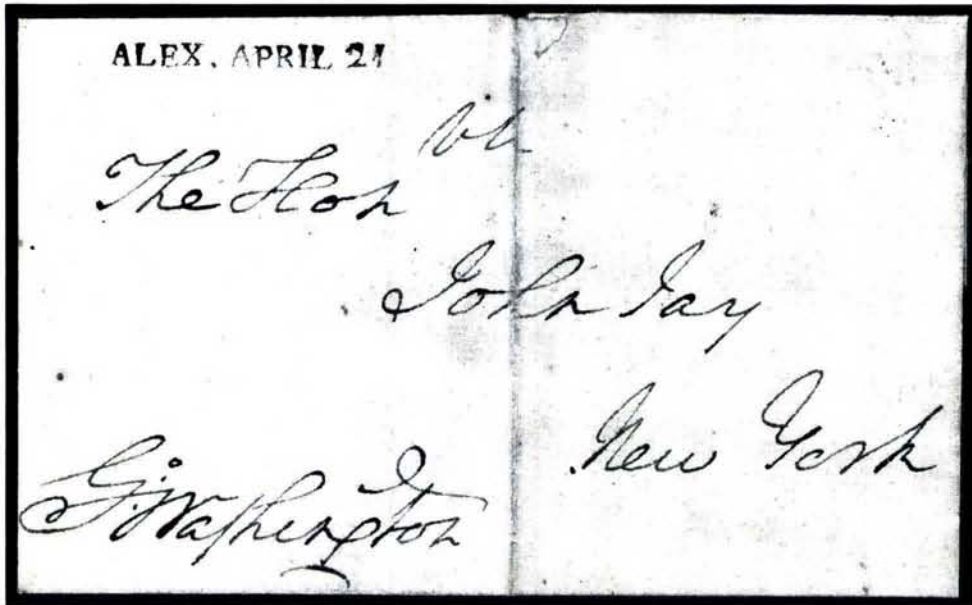 ALEX. APRIL 21
The Hon
John Jay
New York
G:Washington